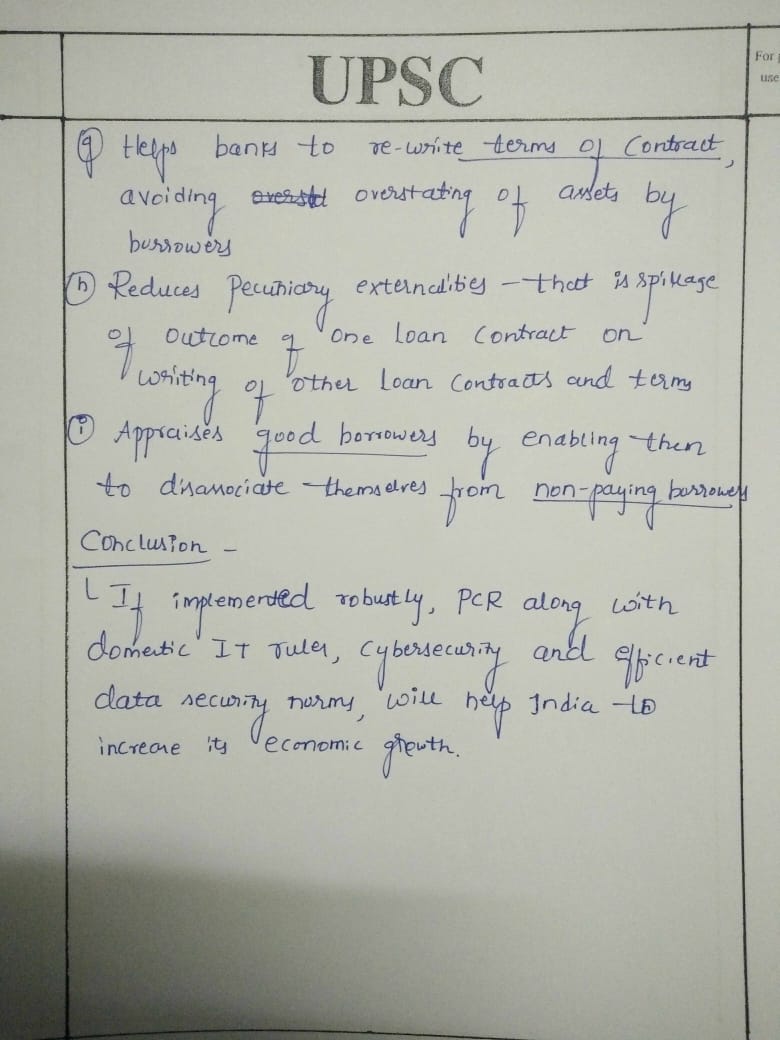 UPSC
For
use
(g) Helps banks to re-write terms of Contract,
avoiding overstating of assets by
burrowers
(h) Reduces Pecuniary externalities - that is spikage
of outcome of one loan contract on
writing of other loan contracts and terms
(i) Appraises good borrowers by enabling them
to disassociate themselves from non-paying burrowers
Conclusion -
If implemented robustly, PCR along with
domestic IT rules, Cybersecurity and efficient
data security norms, will help India to
increase its economic growth.